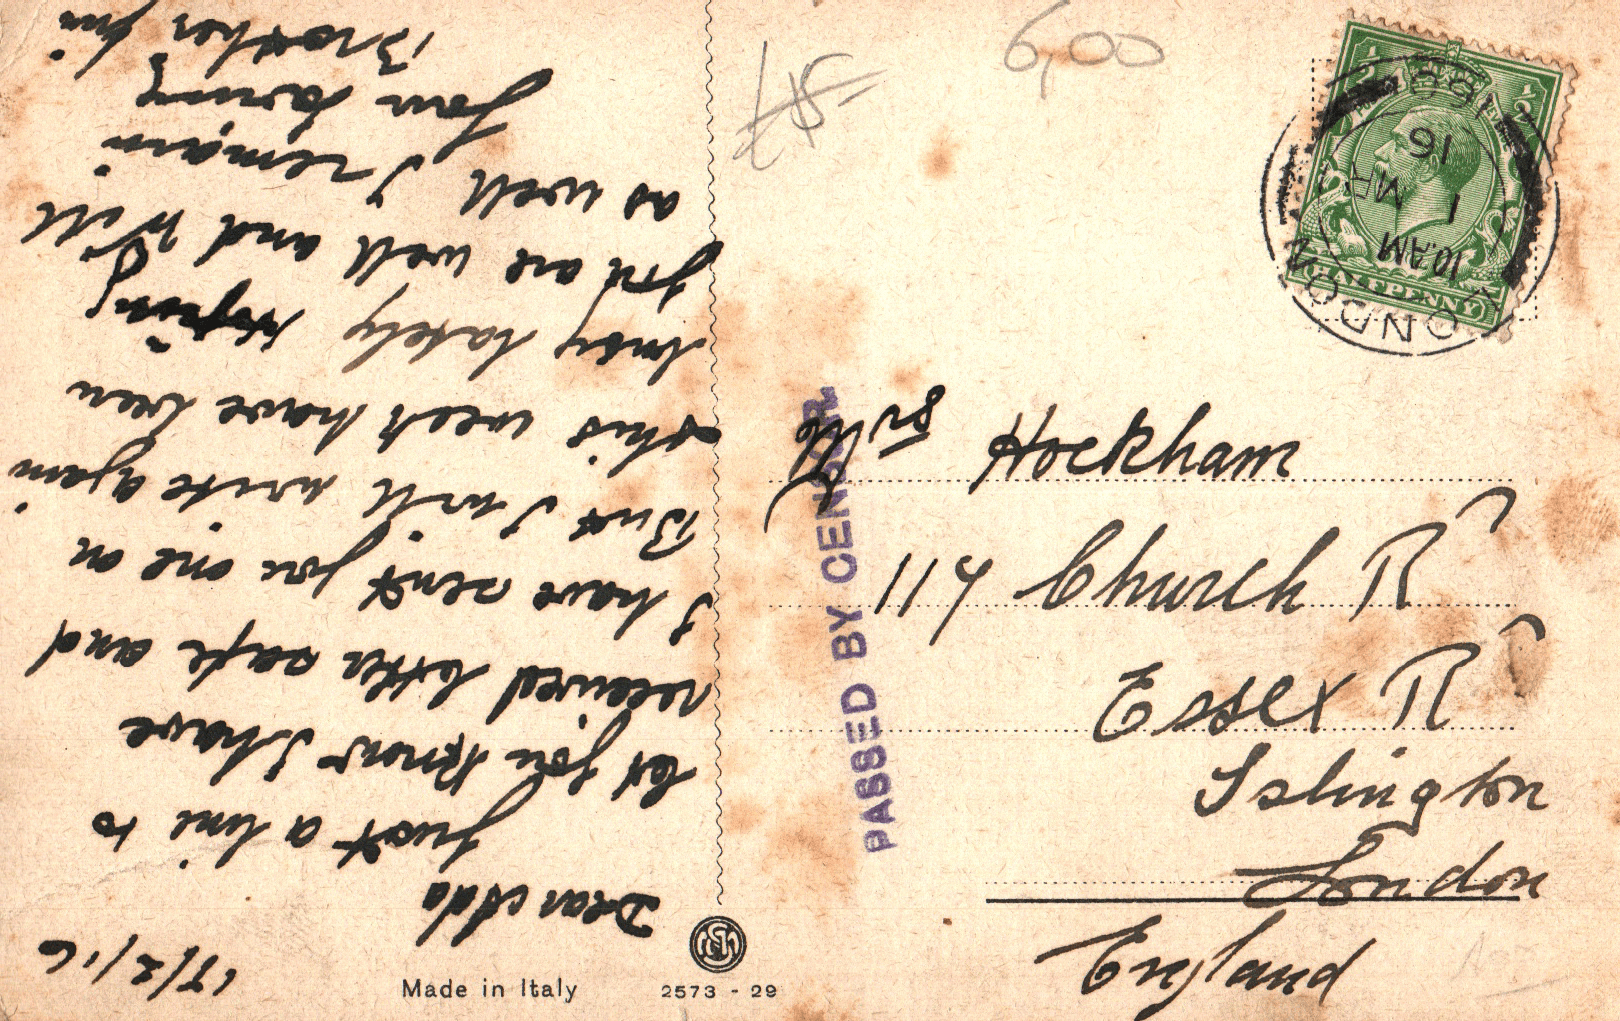 17/2/16
Dear Ada
just a line to
let you know I have
received letter safe and
I have sent you one on
But I will write again
this week have been
busy lately hoping
you are well and Will
as well I remain
your loving
Brother Jim
6,00
£15-
Hockham
Church Rd
Essex Rd
Islington
London
England
PASSED BY CENSOR.
LONDON
10.AM
1 MR
16
HALFPENNY
Made in Italy
2573 - 29